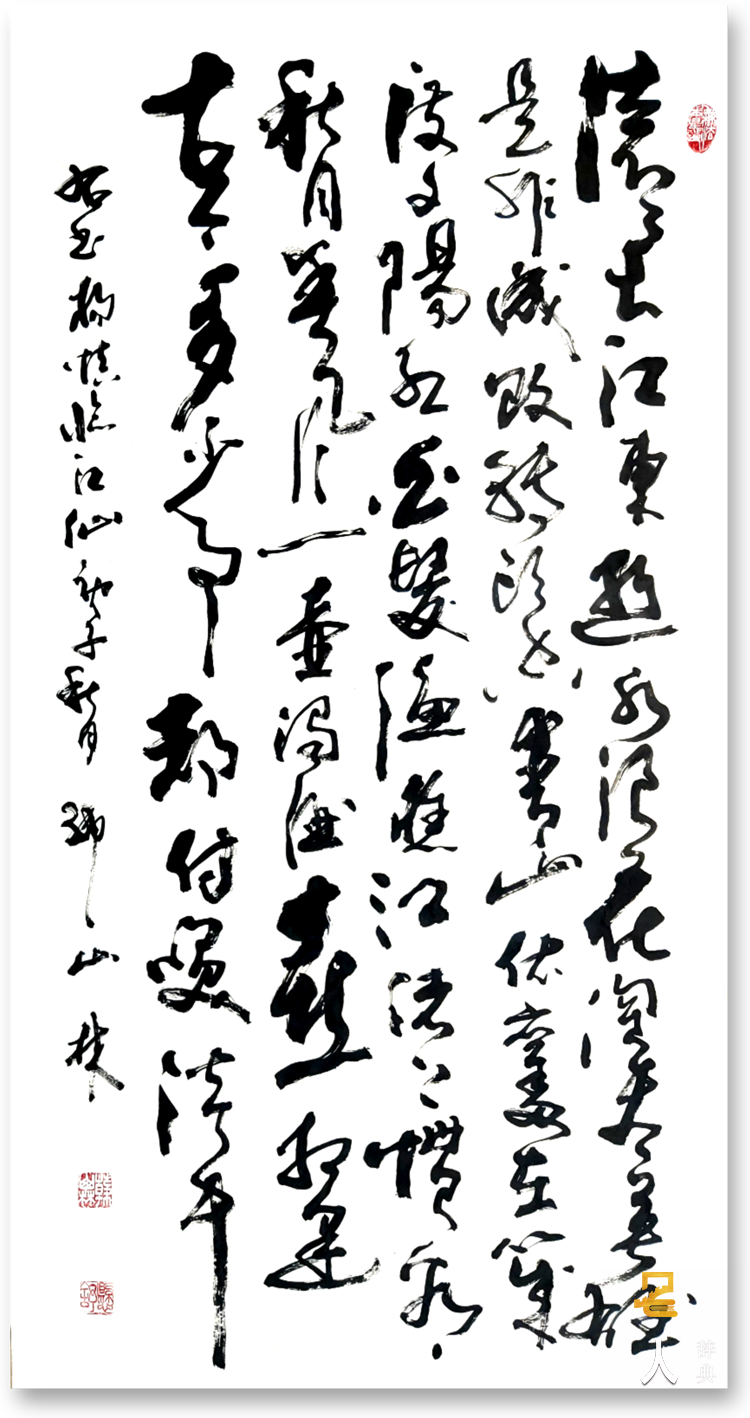 滚滚长江東逝水浪花淘尽英雄
是非成敗转头空青山依舊在幾
度夕陽红白髮漁樵江渚上慣看
秋月春风一壶濁酒喜相逢
古今多少事都付笑谈中
右书楊慎临江仙庚子秋月 山林
名人
辞典